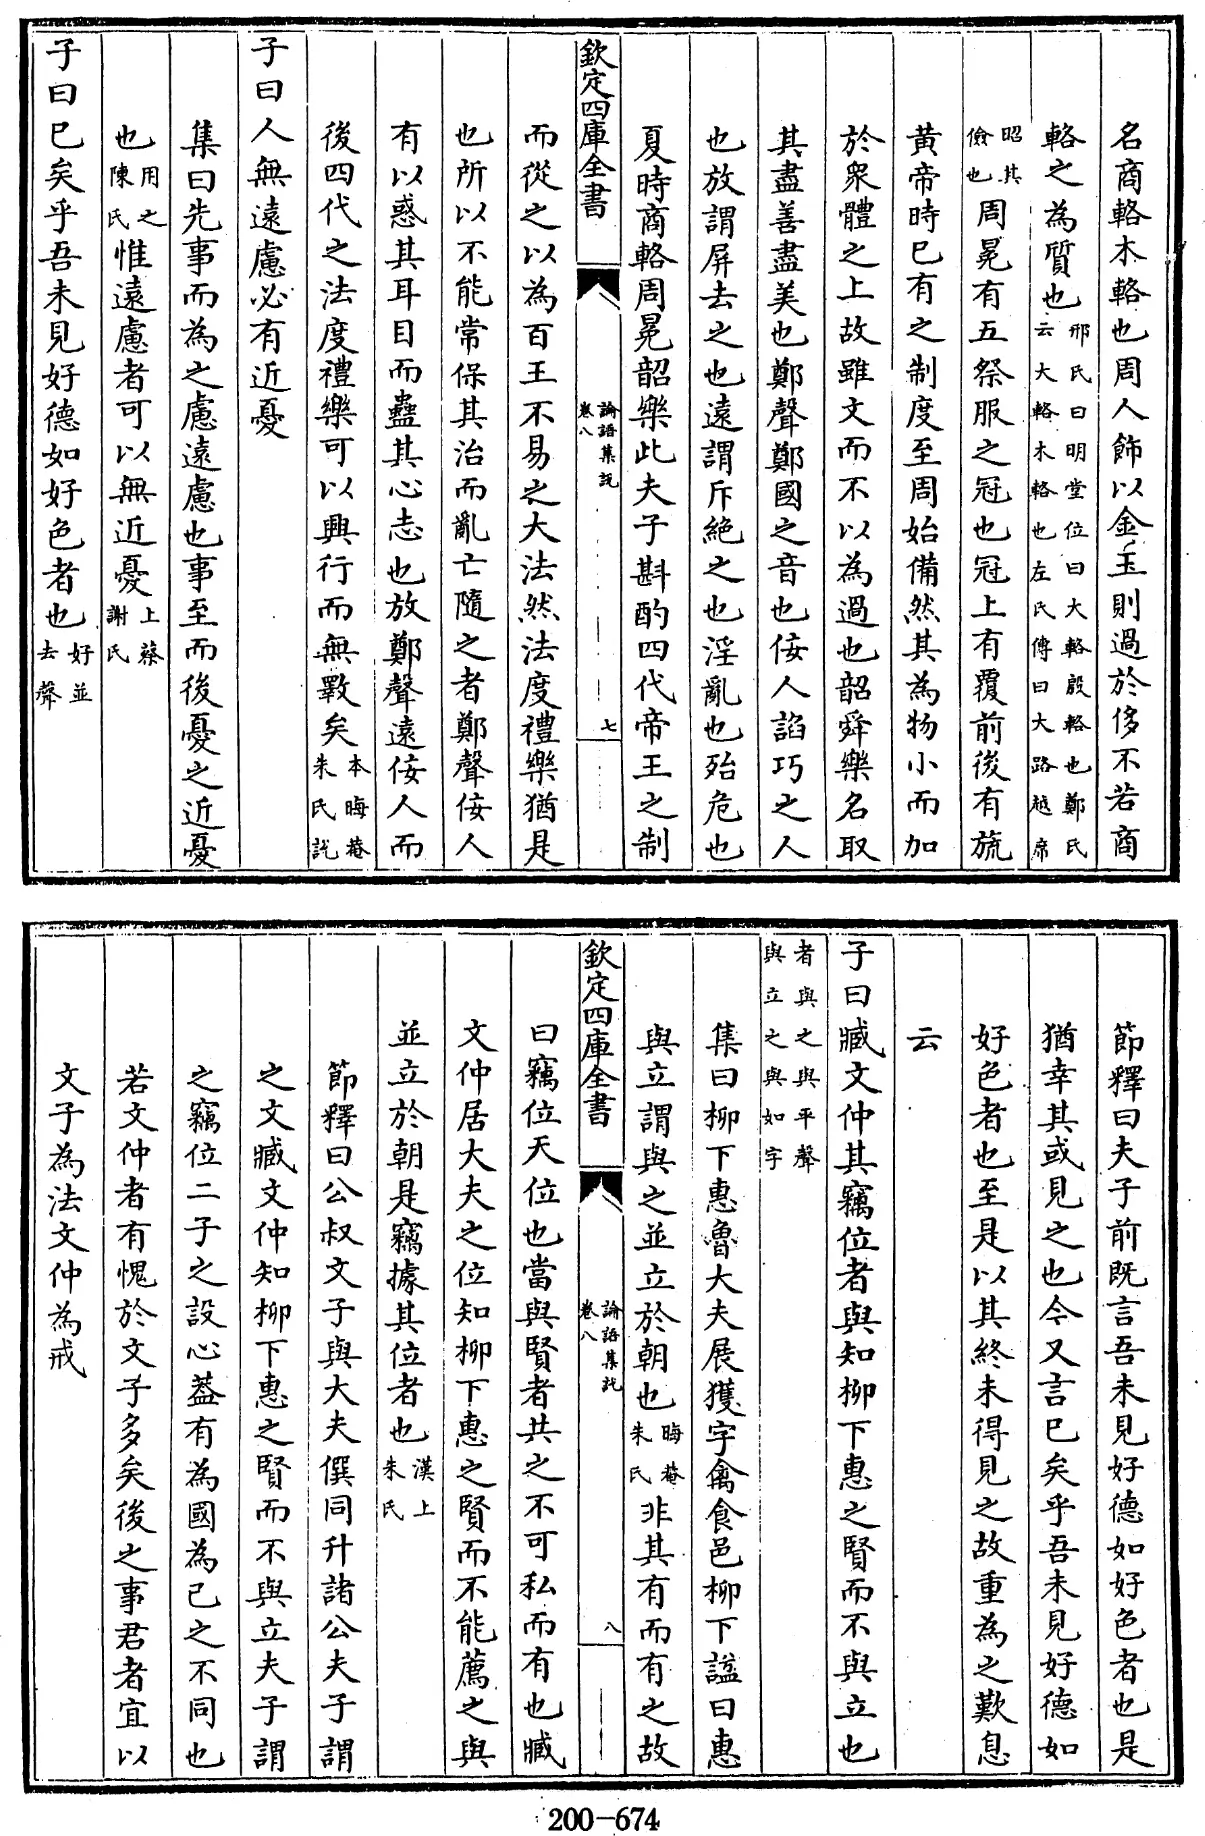 名商輅木輅也周人飾以金玉則過於侈不若商
輅之為質也邢氏曰明堂位曰大輅殷輅也鄭氏云大輅木輅也左氏傳曰大路越席
昭其儉也周冕有五祭服之冠也冠上有覆前後有旒
黄帝時已有之制度至周始備然其為物小而加
於衆體之上故雖文而不以為過也韶舜樂名取
其盡善盡美也鄭聲鄭國之音也佞人諂巧之人
也放謂屏去之也遠謂斥絶之也淫亂也殆危也
夏時商輅周冕韶樂此夫子斟酌四代帝王之制
欽定四庫全書
論語集説
卷八
七
而從之以為百王不易之大法然法度禮樂猶是
也所以不能常保其治而亂亡隨之者鄭聲佞人
有以惑其耳目而蠱其心志也放鄭聲遠佞人而
後四代之法度禮樂可以興行而無斁矣本晦菴朱氏説
子曰人無遠慮必有近憂
集曰先事而為之慮遠慮也事至而後憂之近憂
也用之陳氏惟遠慮者可以無近憂上蔡謝氏
子曰已矣乎吾未見好德如好色者也好並去聲
節釋曰夫子前既言吾未見好德如好色者也是
猶幸其或見之也今又言已矣乎吾未見好德如
好色者也至是以其終未得見之故重為之歎息
云
子曰臧文仲其竊位者與知柳下惠之賢而不與立也
者與之與平聲與立之與如字
集曰柳下惠魯大夫展獲字禽食邑柳下諡曰惠
與立謂與之並立於朝也晦菴朱氏非其有而有之故
欽定四庫全書
論語集説
卷八
八
曰竊位天位也當與賢者共之不可私而有也臧
文仲居大夫之位知柳下惠之賢而不能薦之與
並立於朝是竊據其位者也漢上朱氏
節釋曰公叔文子與大夫僎同升諸公夫子謂
之文臧文仲知柳下惠之賢而不與立夫子謂
之竊位二子之設心蓋有為國為己之不同也
若文仲者有愧於文子多矣後之事君者宜以
文子為法文仲為戒
200-674